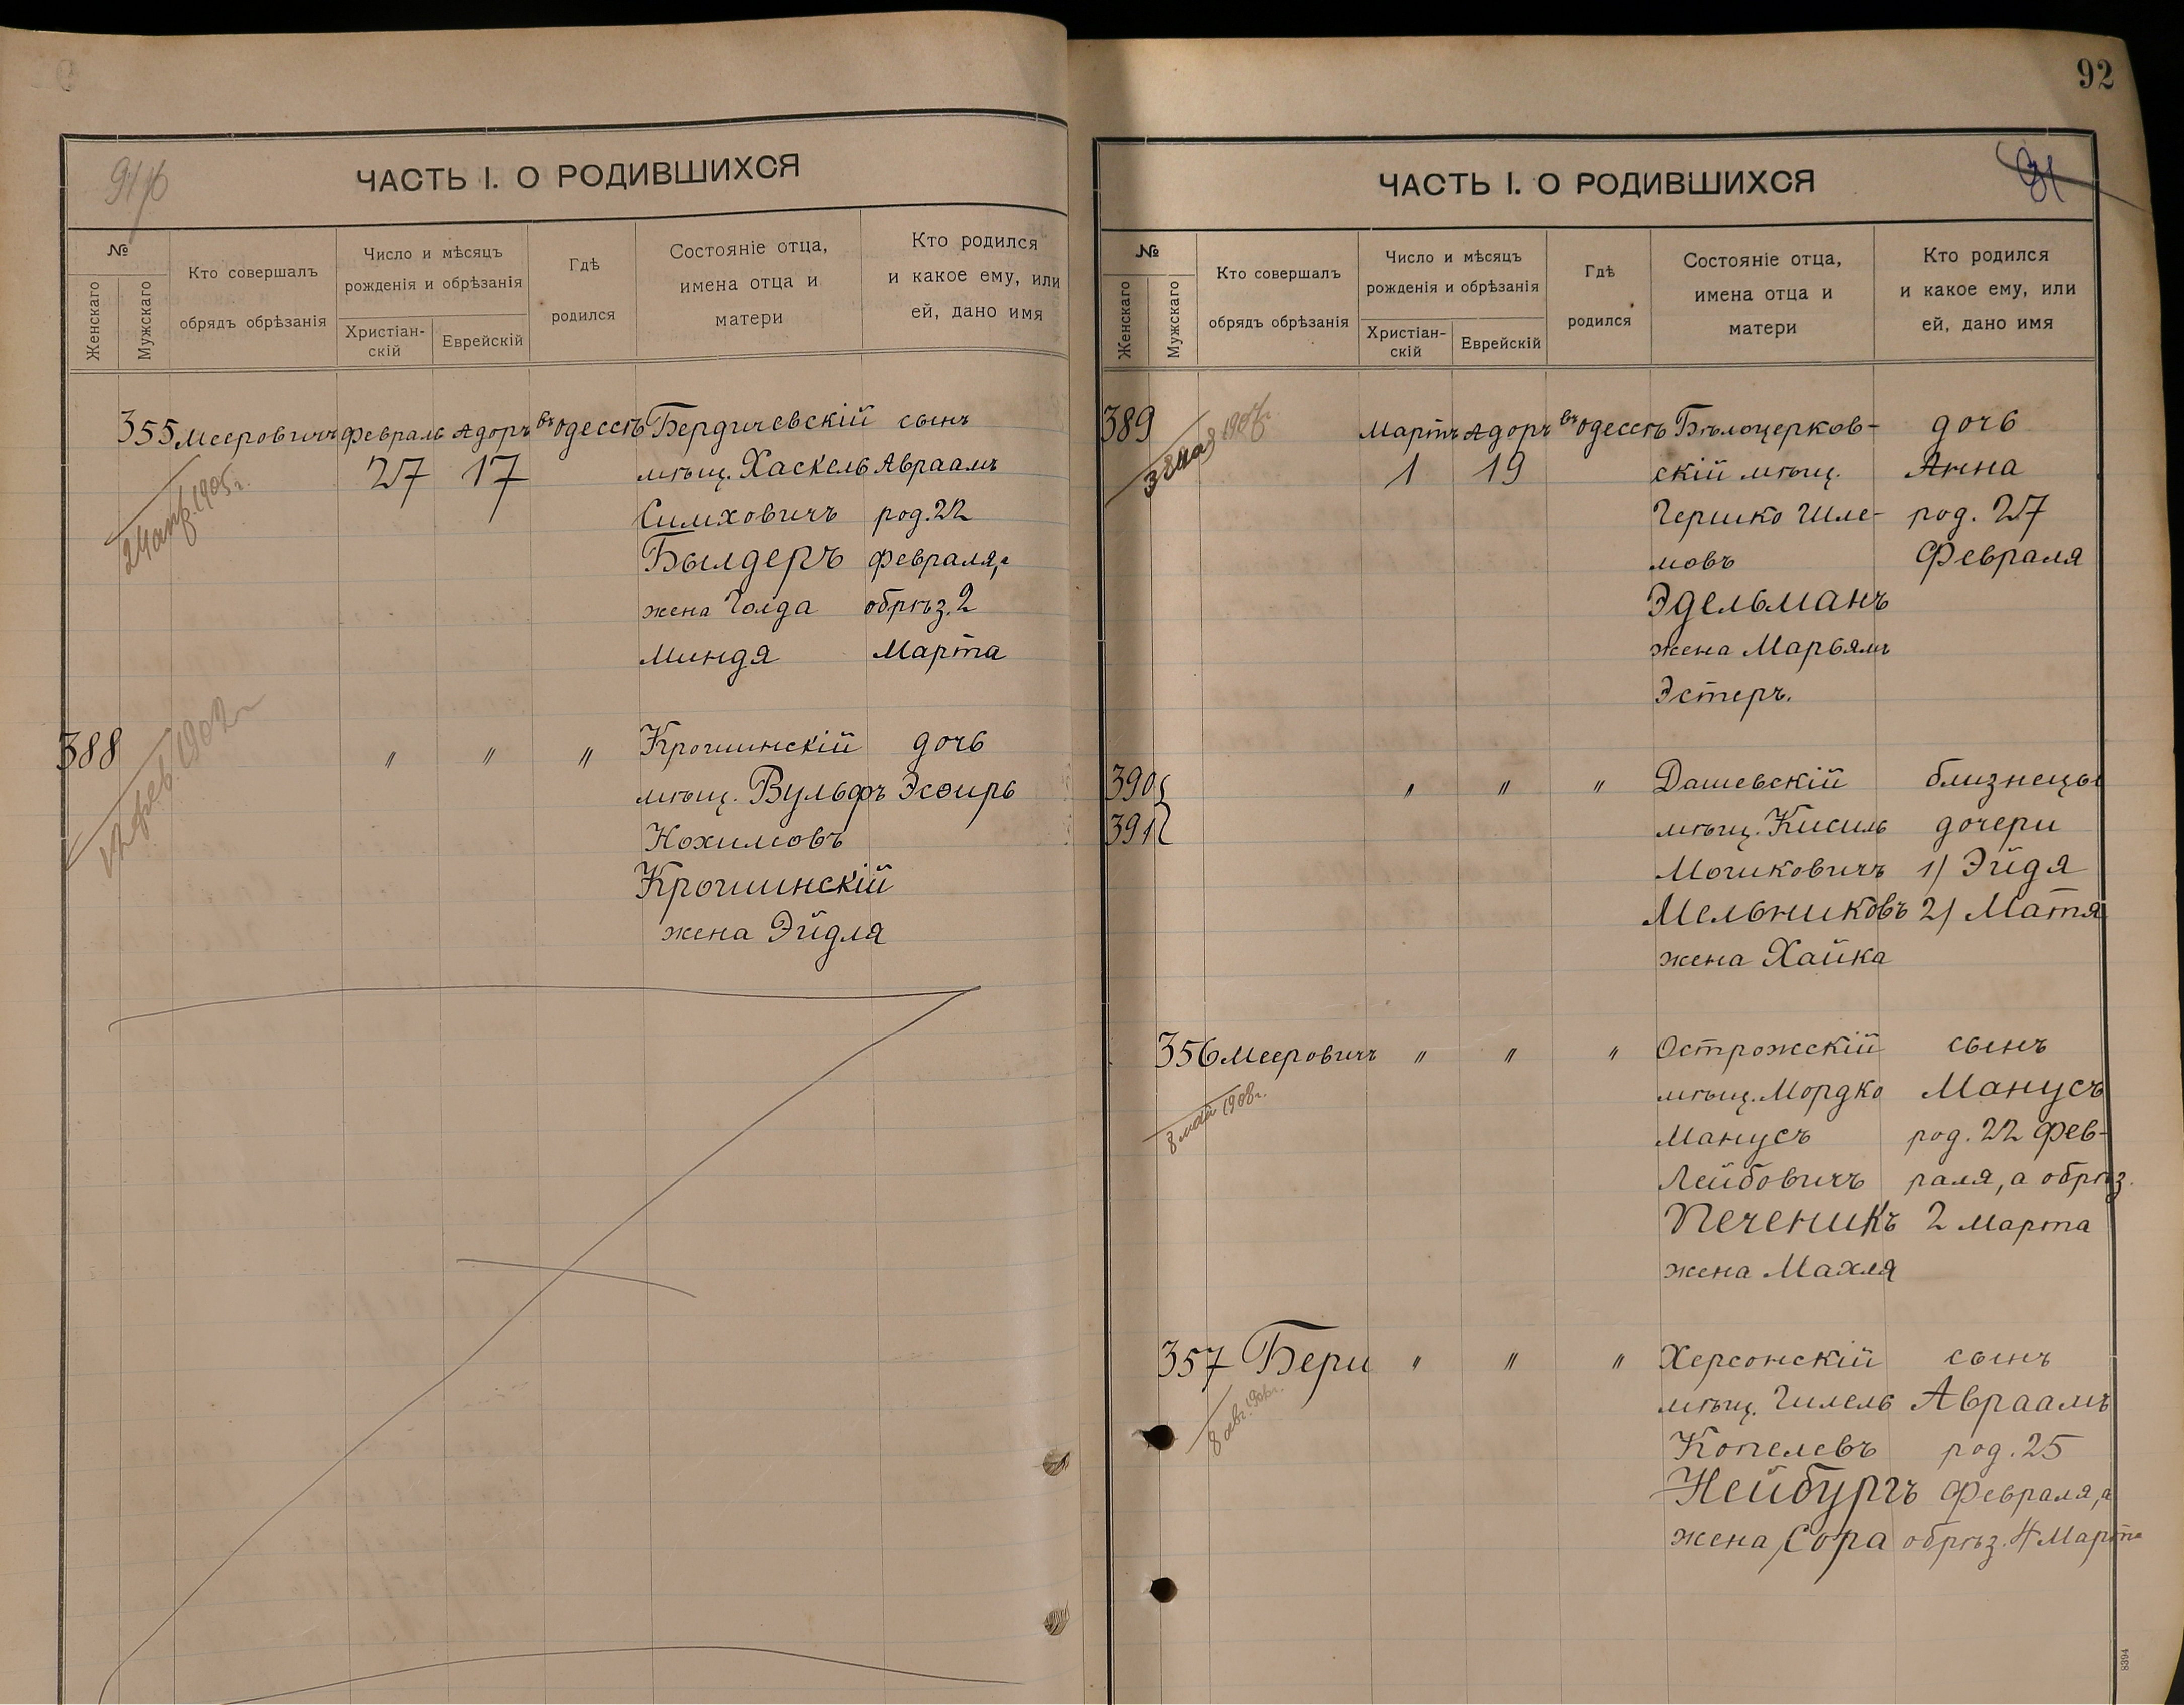 91 об
ЧАСТЬ I. О РОДИВШИХСЯ
№
Женскаго
Мужскаго
Кто совершалъ
обрядъ обрѣзанія
Число и мѣсяцъ
рожденія и обрѣзанія
Христіан-
скій
Еврейскій
Гдѣ
родился
Состояніе отца,
имена отца и
матери
Кто родился
и какое ему, или
ей, дано имя
355 Мееровичъ Февраль Адоръ въ Одессѣ Бердичевскій сынъ
27 17 мѣщ. Хаскель Авраамъ
24 апр. 1905 г.
Симховичъ род. 22
Былдеръ февраля, а
жена Голда обрѣз. 2
Миндя Марта
388 " " " Крошинскій дочь
мѣщ. Вульфъ Эсѳирь
12 фев. 1902 г.
Нохимовъ
Крошинскій
жена Эйдля
92
91
ЧАСТЬ I. О РОДИВШИХСЯ
№
Женскаго
Мужскаго
Кто совершалъ
обрядъ обрѣзанія
Число и мѣсяцъ
рожденія и обрѣзанія
Христіан-
скій
Еврейскій
Гдѣ
родился
Состояніе отца,
имена отца и
матери
Кто родился
и какое ему, или
ей, дано имя
389 Мартъ Адоръ въ Одессѣ Бѣлоцерков- дочь
3 мая 1907 г.
1 19 скій мѣщ. Анна
Гершко Шле- род. 27
мовъ Февраля
Эдельманъ
жена Марьямъ
Эстеръ.
390 " " " Дашевскій близнецы
391 мѣщ. Кисиль дочери
Мошковичъ 1) Эйдя
Мельниковъ 2) Матя
жена Хайка
356 Мееровичъ " " " Острожскій сынъ
мѣщ. Мордко Манусъ
8 май 1908 г.
Манусъ род. 22 фев-
Лейбовичъ раля, а обрѣз.
Печеникъ 2 Марта
жена Махля
357 Бери " " " Херсонскій сынъ
мѣщ. Гилель Авраамъ
8 авг. 1906 г.
Копелевъ род. 25
Нейбургъ Февраля, а
жена Сора обрѣз. 4 Марта
8394